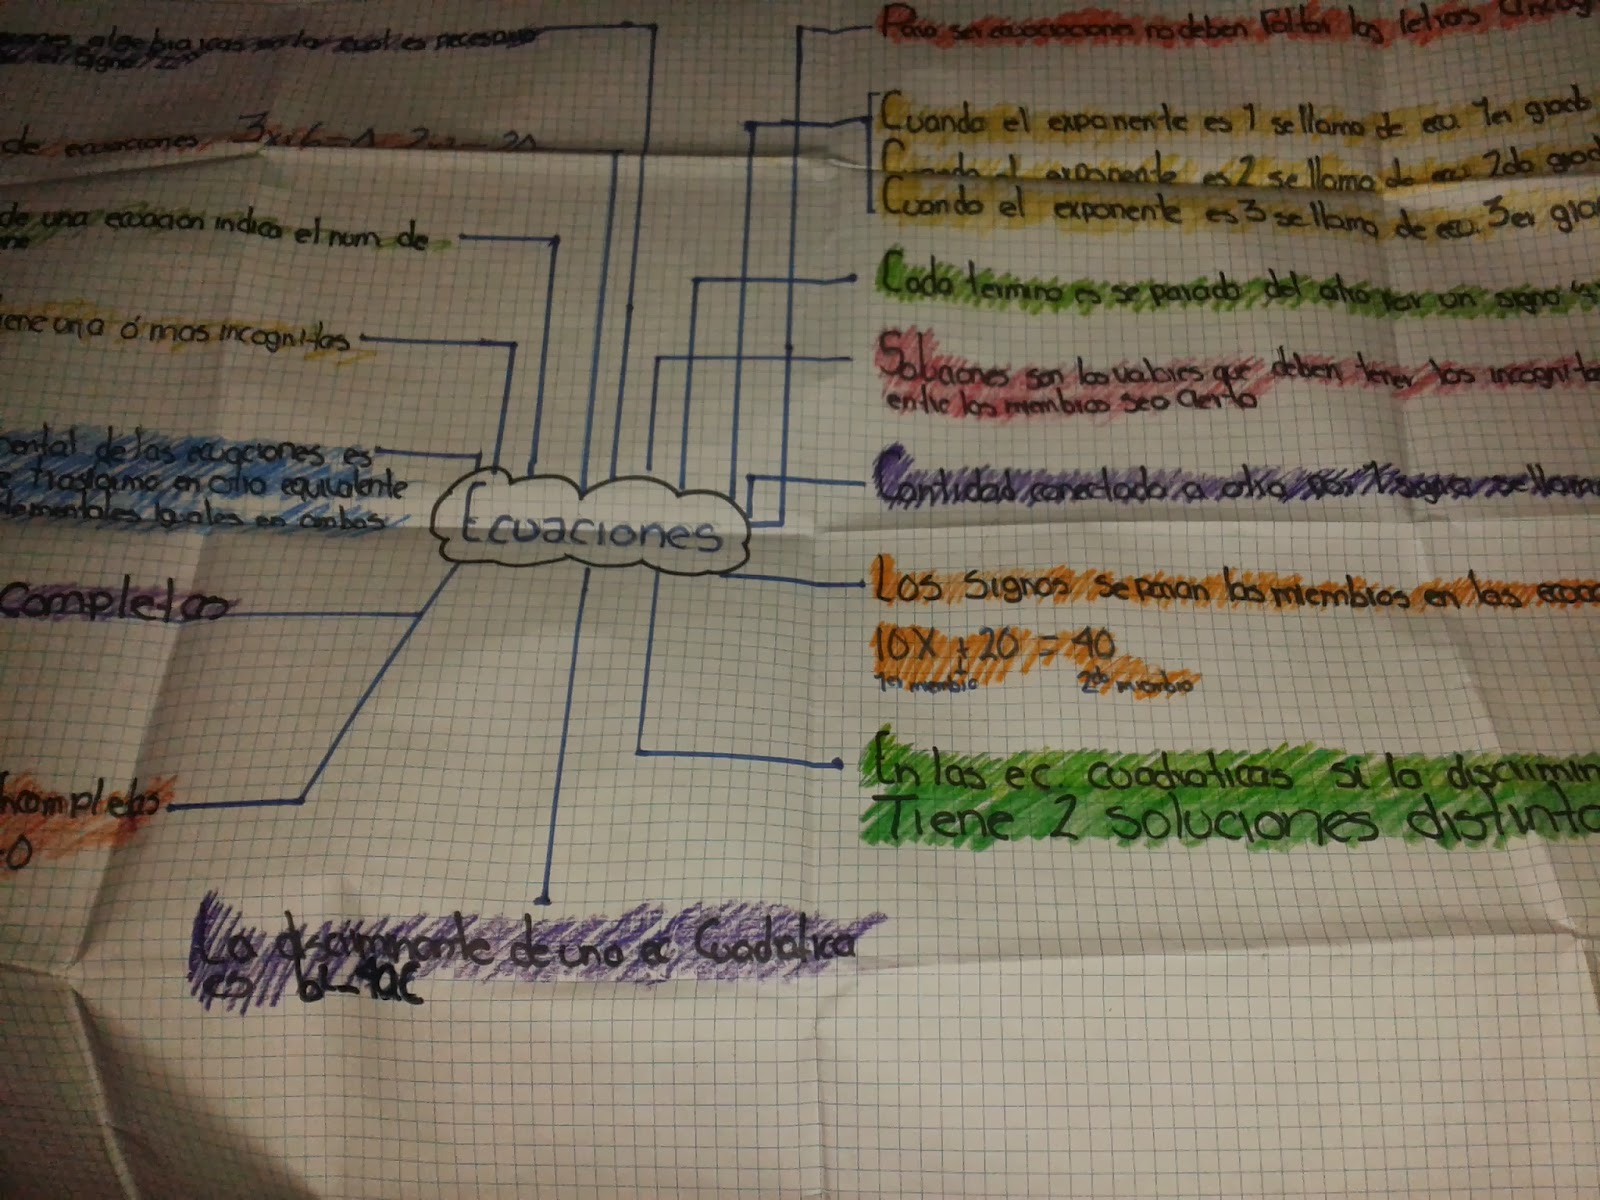 algebraicas en la cual es necesario
el signo "="
de ecuaciones
de una ecuación indica el num. de
iene una ó mas incognitas
mental de las ecuaciones es
trasformo en otro equivalente
elementales iguales en ambos
Completas
Incompletas
=0
Ecuaciones
Para ser ecuaciones no deben faltar las letras
Cuando el exponente es 1 se llama de ecu. 1er grado
Cuando el exponente es 2 se llama de ecu 2do grad
Cuando el exponente es 3 se llama de ecu. 3er gra
Cada termino es separado del otro por un signo
Soluciones son los valores que deben tener las incognita
entre los miembros sea cierto
Cantidad conectada a otra por 1 signo se llama
Los signos separan los miembros en las ecuac
10x + 20 = 40
1er miembro 2do miembro
En las ec. cuadraticas si la discrimin
Tiene 2 soluciones distinta
La discriminante de una ec Cuadratica
es b2-4ac